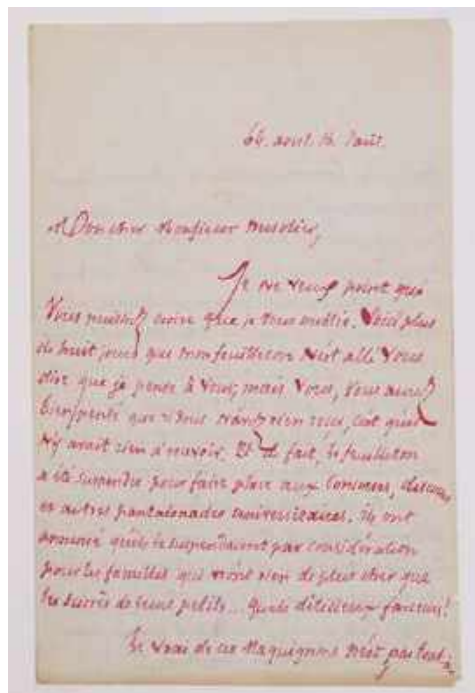 Mon cher Monsieur
Je ne veux point que
Vous puissiez croire que je vous oublie. Voici plus
de huit jours que mon feuilleton n'est allé vous
dire que je pense à vous; mais vous, vous aurez
bien pensé que si vous n'aviez rien reçu, c'est qu'il
n'y avait rien à recevoir. Et de fait, le feuilleton
a été suspendu pour faire place aux Concours, discours
et autres pantalonades universitaires. Ils ont
annoncé qu'ils le suspendaient par considération
pour les familles qui n'ont rien de plus cher que
les succès de leurs petits... Quels délicieux farceurs!
Le vrai de ces Maquignons n'est pas tout